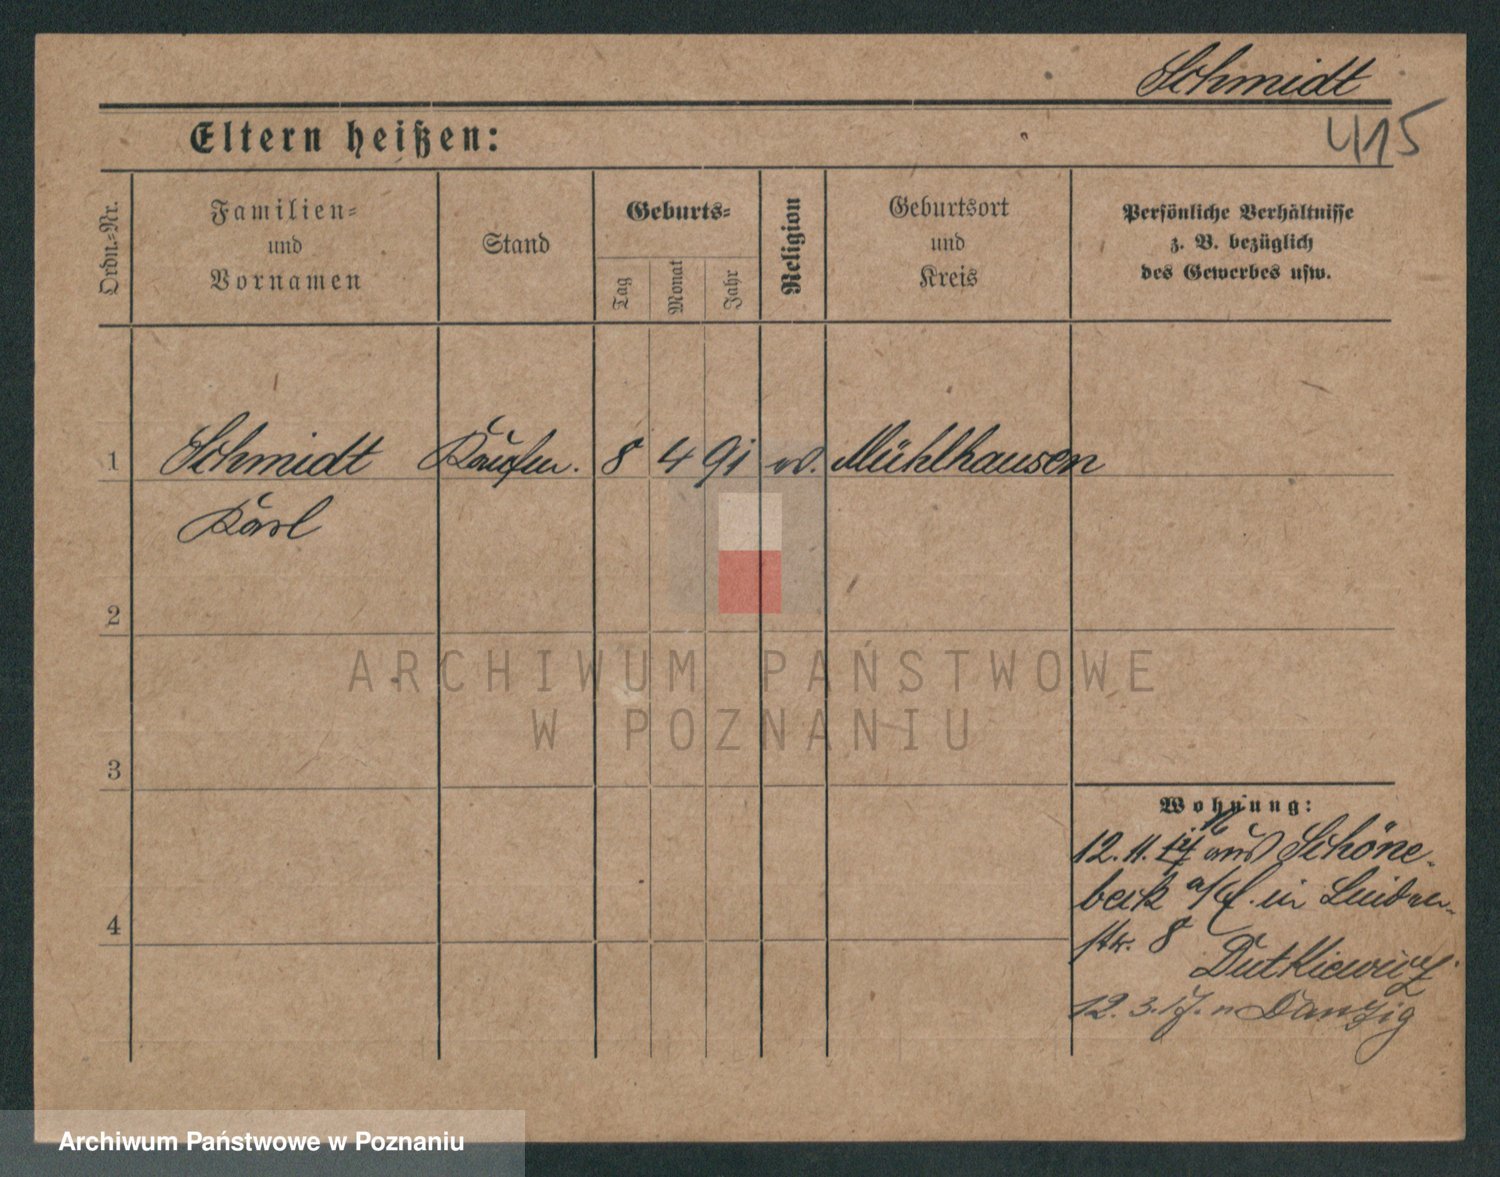 Schmidt
415
Eltern heißen:
Ordn.-Nr.
Familien-
und
Vornamen
Stand
Geburts-
Tag
Monat
Jahr
Religion
Geburtsort
und
Kreis
Persönliche Verhältnisse
z. B. bezüglich
des Gewerbes usw.
1 Schmidt Kaufm. 8 4 91 ev. Mühlhausen
Karl
2
3
4
Wohnung:
16
12. 11. aus Schöne-
beck a/E. in Linden-
str. 8
Dutkiewicz
12. 3. 17. n Danzig
ARCHIWUM PAŃSTWOWE
W POZNANIU
Archiwum Państwowe w Poznaniu